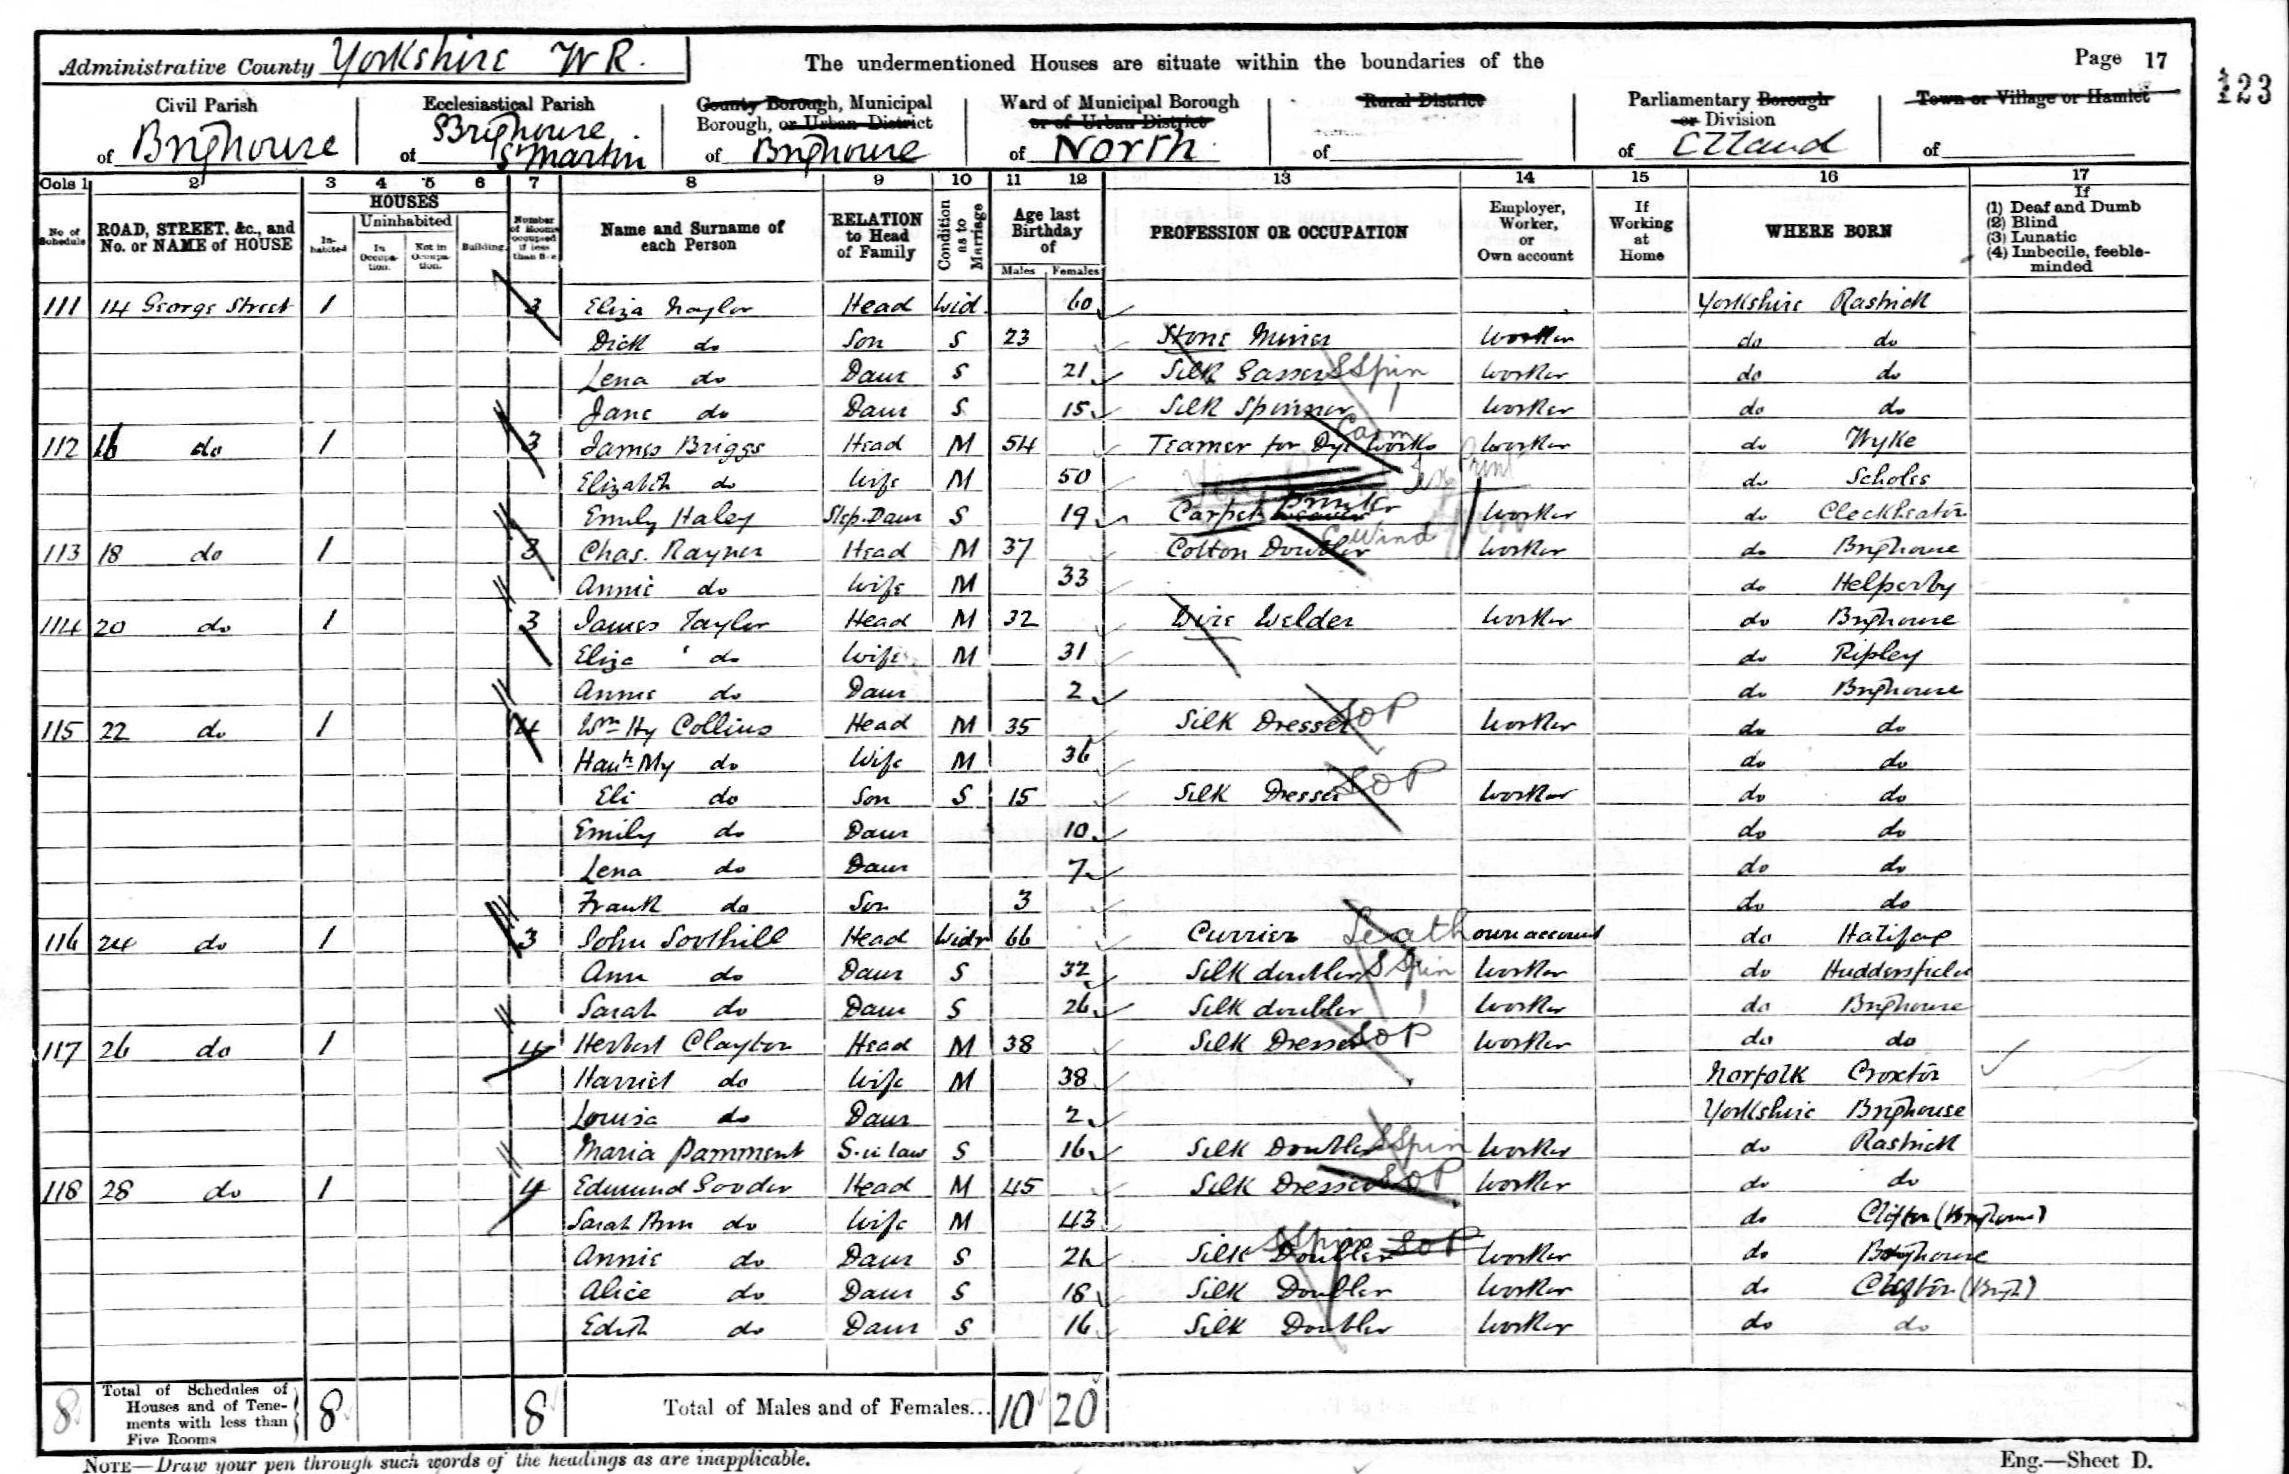 Administrative County Yorkshire W R. The undermentioned Houses are situate within the boundaries of the Page 17
123
Civil Parish of Brighouse
Ecclesiastical Parish of Brighouse St Martin
County Borough, Municipal Borough, or Urban District of Brighouse
Ward of Municipal Borough or of Urban District of North
Rural District of
Parliamentary Borough or Division of Elland
Town or Village or Hamlet of
Cols 1 2 3 4 5 6 7 8 9 10 11 12 13 14 15 16 17
No. of Schedule
ROAD, STREET, &c., and No. or NAME of HOUSE
HOUSES
Inhabited
Uninhabited
In Occupation.
Not in Occupation.
Building
Number of Rooms occupied if less than five
Name and Surname of each Person
RELATION to Head of Family
Condition as to Marriage
Age last Birthday of
Males Females
PROFESSION OR OCCUPATION
Employer, Worker, or Own account
If Working at Home
WHERE BORN
If (1) Deaf and Dumb (2) Blind (3) Lunatic (4) Imbecile, feeble-minded
111 14 George Street 1 3 Eliza Naylor Head Wid. 60 Yorkshire Rastrick
Dick do Son S 23 Stone Miner Worker do do
Lena do Daur S 21 Silk Gasser S Spin Worker do do
Jane do Daur S 15 Silk Spinner Worker do do
112 16 do 1 3 James Briggs Head M 54 Teamer for Dye Works Carm Worker do Wyke
Elizabth do Wife M 50 do Scholes
Emily Haley Step-Daur S 19 Carpet Weaver Printer Worker do Cleckheaton
113 18 do 1 3 Chas. Rayner Head M 37 Cotton Doubler C Wind Worker do Brighouse
Annie do Wife M 33 do Helperby
114 20 do 1 3 James Taylor Head M 32 Wire Welder Worker do Brighouse
Eliza do Wife M 31 do Ripley
Annie do Daur 2 do Brighouse
115 22 do 1 4 Wm Hy Collins Head M 35 Silk Dresser SOP Worker do do
Hanh My do Wife M 36 do do
Eli do Son S 15 Silk Dresser SOP Worker do do
Emily do Daur 10 do do
Lena do Daur 7 do do
Frank do Son 3 do do
116 24 do 1 3 John Soothill Head Widr 66 Currier Leath own account do Halifax
Ann do Daur S 32 Silk doubler S Spin Worker do Huddersfield
Sarah do Daur S 26 Silk doubler Worker do Brighouse
117 26 do 1 4 Herbert Clayton Head M 38 Silk Dresser SOP Worker do do
Harriet do Wife M 38 Norfolk Croxton
Louisa do Daur 2 Yorkshire Brighouse
Maria Pamment S-in law S 16 Silk Doubler S Spin Worker do Rastrick
118 28 do 1 4 Edmund Sooder Head M 45 Silk Dresser SOP Worker do do
Sarah Ann do Wife M 43 do Clifton (Brighouse)
Annie do Daur S Silk Doubler S Spin SOP Worker do Brighouse
Alice do Daur S 18 Silk Doubler Worker do Clifton (Brigh)
Edith do Daur S 16 Silk Doubler Worker do do
8 Total of Schedules of Houses and of Tenements with less than Five Rooms 8 8 Total of Males and of Females... 10 20
NOTE—Draw your pen through such words of the headings as are inapplicable. Eng.—Sheet D.